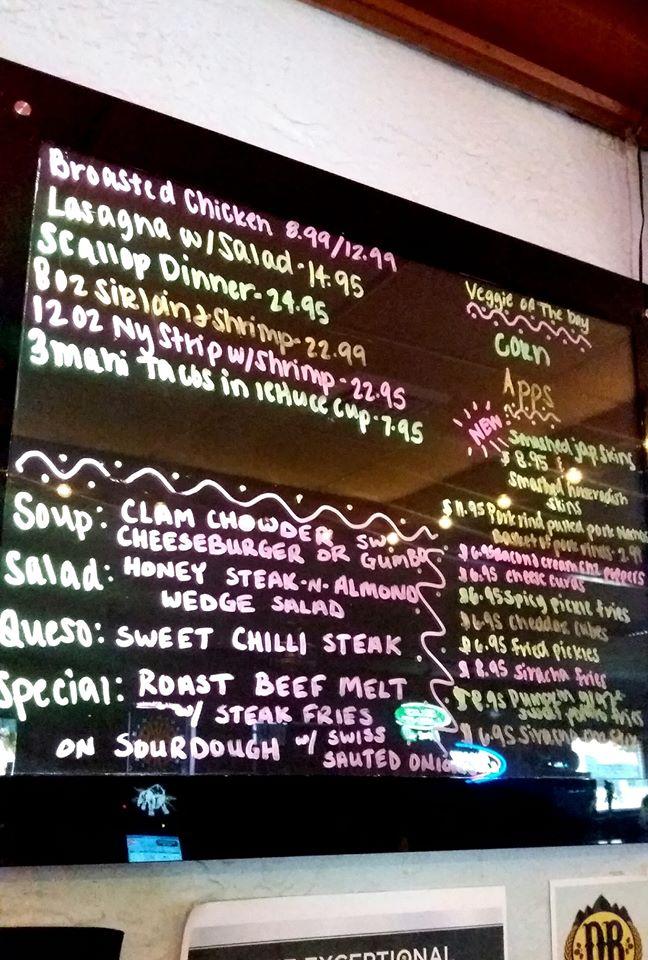 Broasted Chicken 8.99/12.99
Lasagna w/Salad-14.95
Scallop Dinner-24.95
8oz Sirloin & Shrimp-22.99
12oz Ny Strip w/Shrimp-22.95
3 mahi Tacos in lettuce cup-7.95
Soup: CLAM CHOWDER SW
CHEESEBURGER OR GUMBO
Salad: HONEY STEAK-N-ALMOND
WEDGE SALAD
Queso: SWEET CHILLI STEAK
Special: ROAST BEEF MELT
W/ STEAK FRIES
ON SOURDOUGH W/ SWISS
SAUTED
Veggie of The Day
corn
Apps
NEW
smashed jap skins
$8.95
smashed horseradish
skins
$11.95 Pork rind pulled pork Nachos
basket of pork rinds- 2.99
$6.95 Bacon & cream chz poppers
$6.95 cheese curds
$6.95 Spicy pickle fries
$6.95 cheddar cubes
$6.95 Fried pickles
$8.95 Siracha fries
$8.95
sweet potato fries
$6.95 Siracha
EXCEPTIONAL
DB